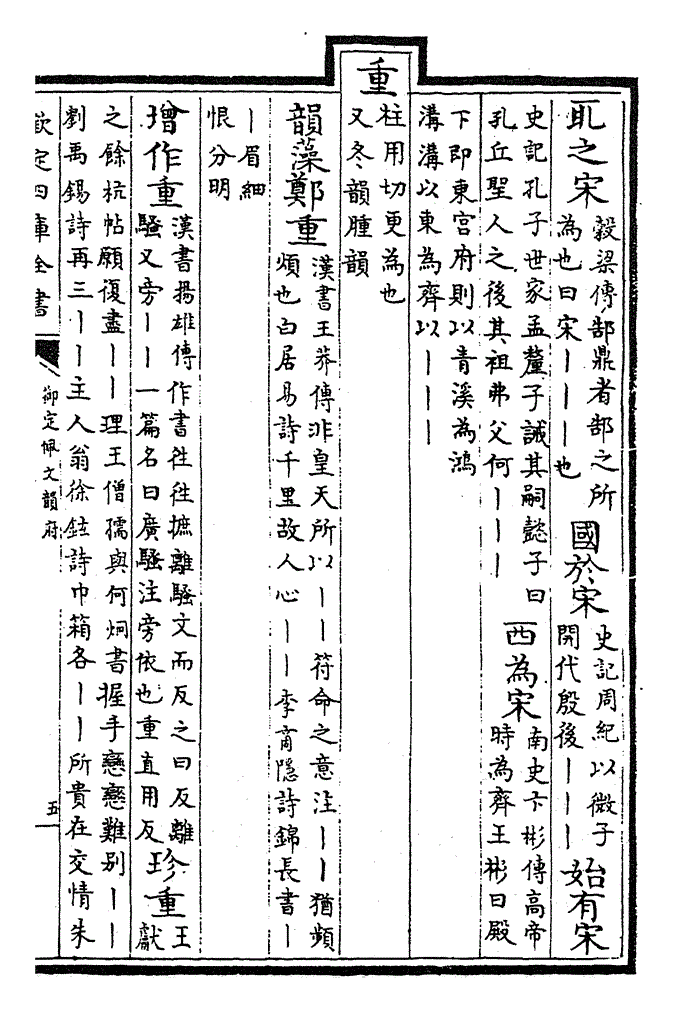 取之宋
穀梁傳郜鼎者郜之所
為也曰宋丨丨丨也
國於宋
史記周紀以微子
開代殷後丨丨丨
始有宋
史記孔子世家孟釐子誡其嗣懿子曰
孔丘聖人之後其祖弗父何丨丨丨
西為宋
南史卞彬傳高帝
時為齊王彬曰殿
下即東宮府則以青溪為鴻
溝溝以東為齊以丨丨丨
重
柱用切更為也
又冬韻腫韻
韻藻鄭重
漢書王莽傳非皇天所以丨丨符命之意注丨丨猶頻
煩也白居易詩千里故人心丨丨李商隱詩錦長書丨
丨眉細
恨分明
增作重
漢書揚雄傳作書往往摭離騷文而反之曰反離
騷又旁丨丨一篇名曰廣騷注旁依也重直用反
珍重
王
獻
之餘杭帖願復盡丨丨理王僧孺與何炯書握手戀戀難别丨丨
劉禹錫詩再三丨丨主人翁徐鉉詩巾箱各丨丨所貴在交情朱
欽定四庫全書
御定佩文韻府
五